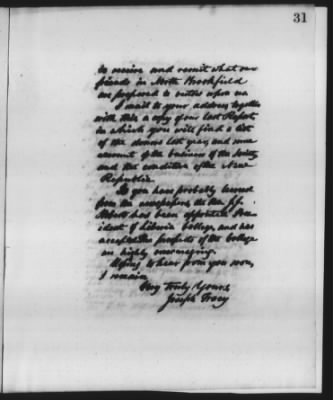 31
to receive and remit what our
friends in North Brookfield
are prepared to entrust upon us
I mail to your address, together
with this a copy of our last Report
in which you will find a list
of the donors last year, and some
account of the business of the Society
and the condition of the New
Republic.
As you have probably learned
from the newspapers, the Hon.
has been appointed Pres
ident of Liberia College, and has
accepted. The prospects of the College
are highly encouraging.
Hoping to hear from you soon,
I remain
Very Truly Yours,
Joseph Tracy